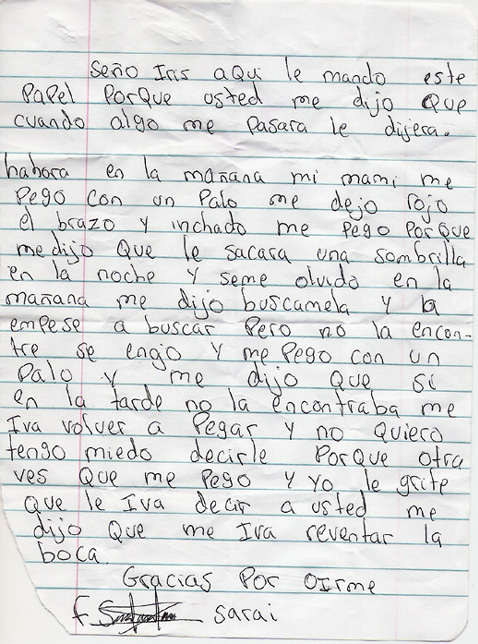 Seño Iris aqui le mando este
Papel Porque usted me dijo que
cuando algo me pasara le dijera.
hahora en la mañana mi mami me
Pego con un Palo me dejo rojo
el brazo y inchado me Pego Porque
me dijo Que le sacara una sombrilla
en la noche y seme olvido en la
mañana me dijo buscamela y la
empese a buscar Pero no la encon-
tre se enojo y me Pego con un
Palo y me dijo que si
en la tarde no la encontraba me
Iva volver a Pegar y no Quiero
tengo miedo decirle Porque otra
ves Que me Pego y yo le grite
que le Iva decir a usted me
dijo Que me Iva reventar la
boca.
Gracias Por Oirme
f. sarai